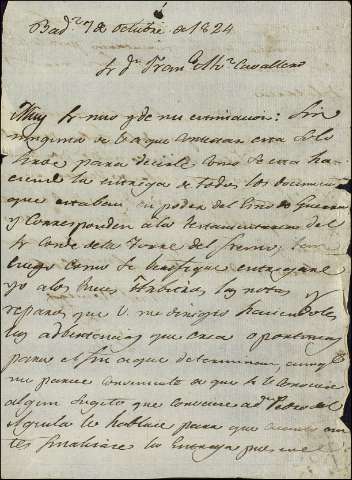 Bad.z 7 de octubre de 1824
Sr dn Fran.co Mhr. Cavallero
Muy Sr mio y de mi estimacion: Sin
ninguna de Va que contestar esta solo
sirve para decirle como se esta ha-
ciendo la entrega de todos los documentos
que estaban en poder del Como de Guerra
y corresponden a la testamentaria del
Sr Conde de la Torre del fresno; tan
luego como se verifique entregaré
yo a los Jueces las notas y
reparos que V. me dirigio haciendoles
las advertencias que crea oportunas
para el fin a que determinan, aunque
me parece combeniente a que si V. conociere
algun sugeto que conociere a dn Pedro del
Aguila le hablase para que cuanto an-
tes finalizase la entrega pues